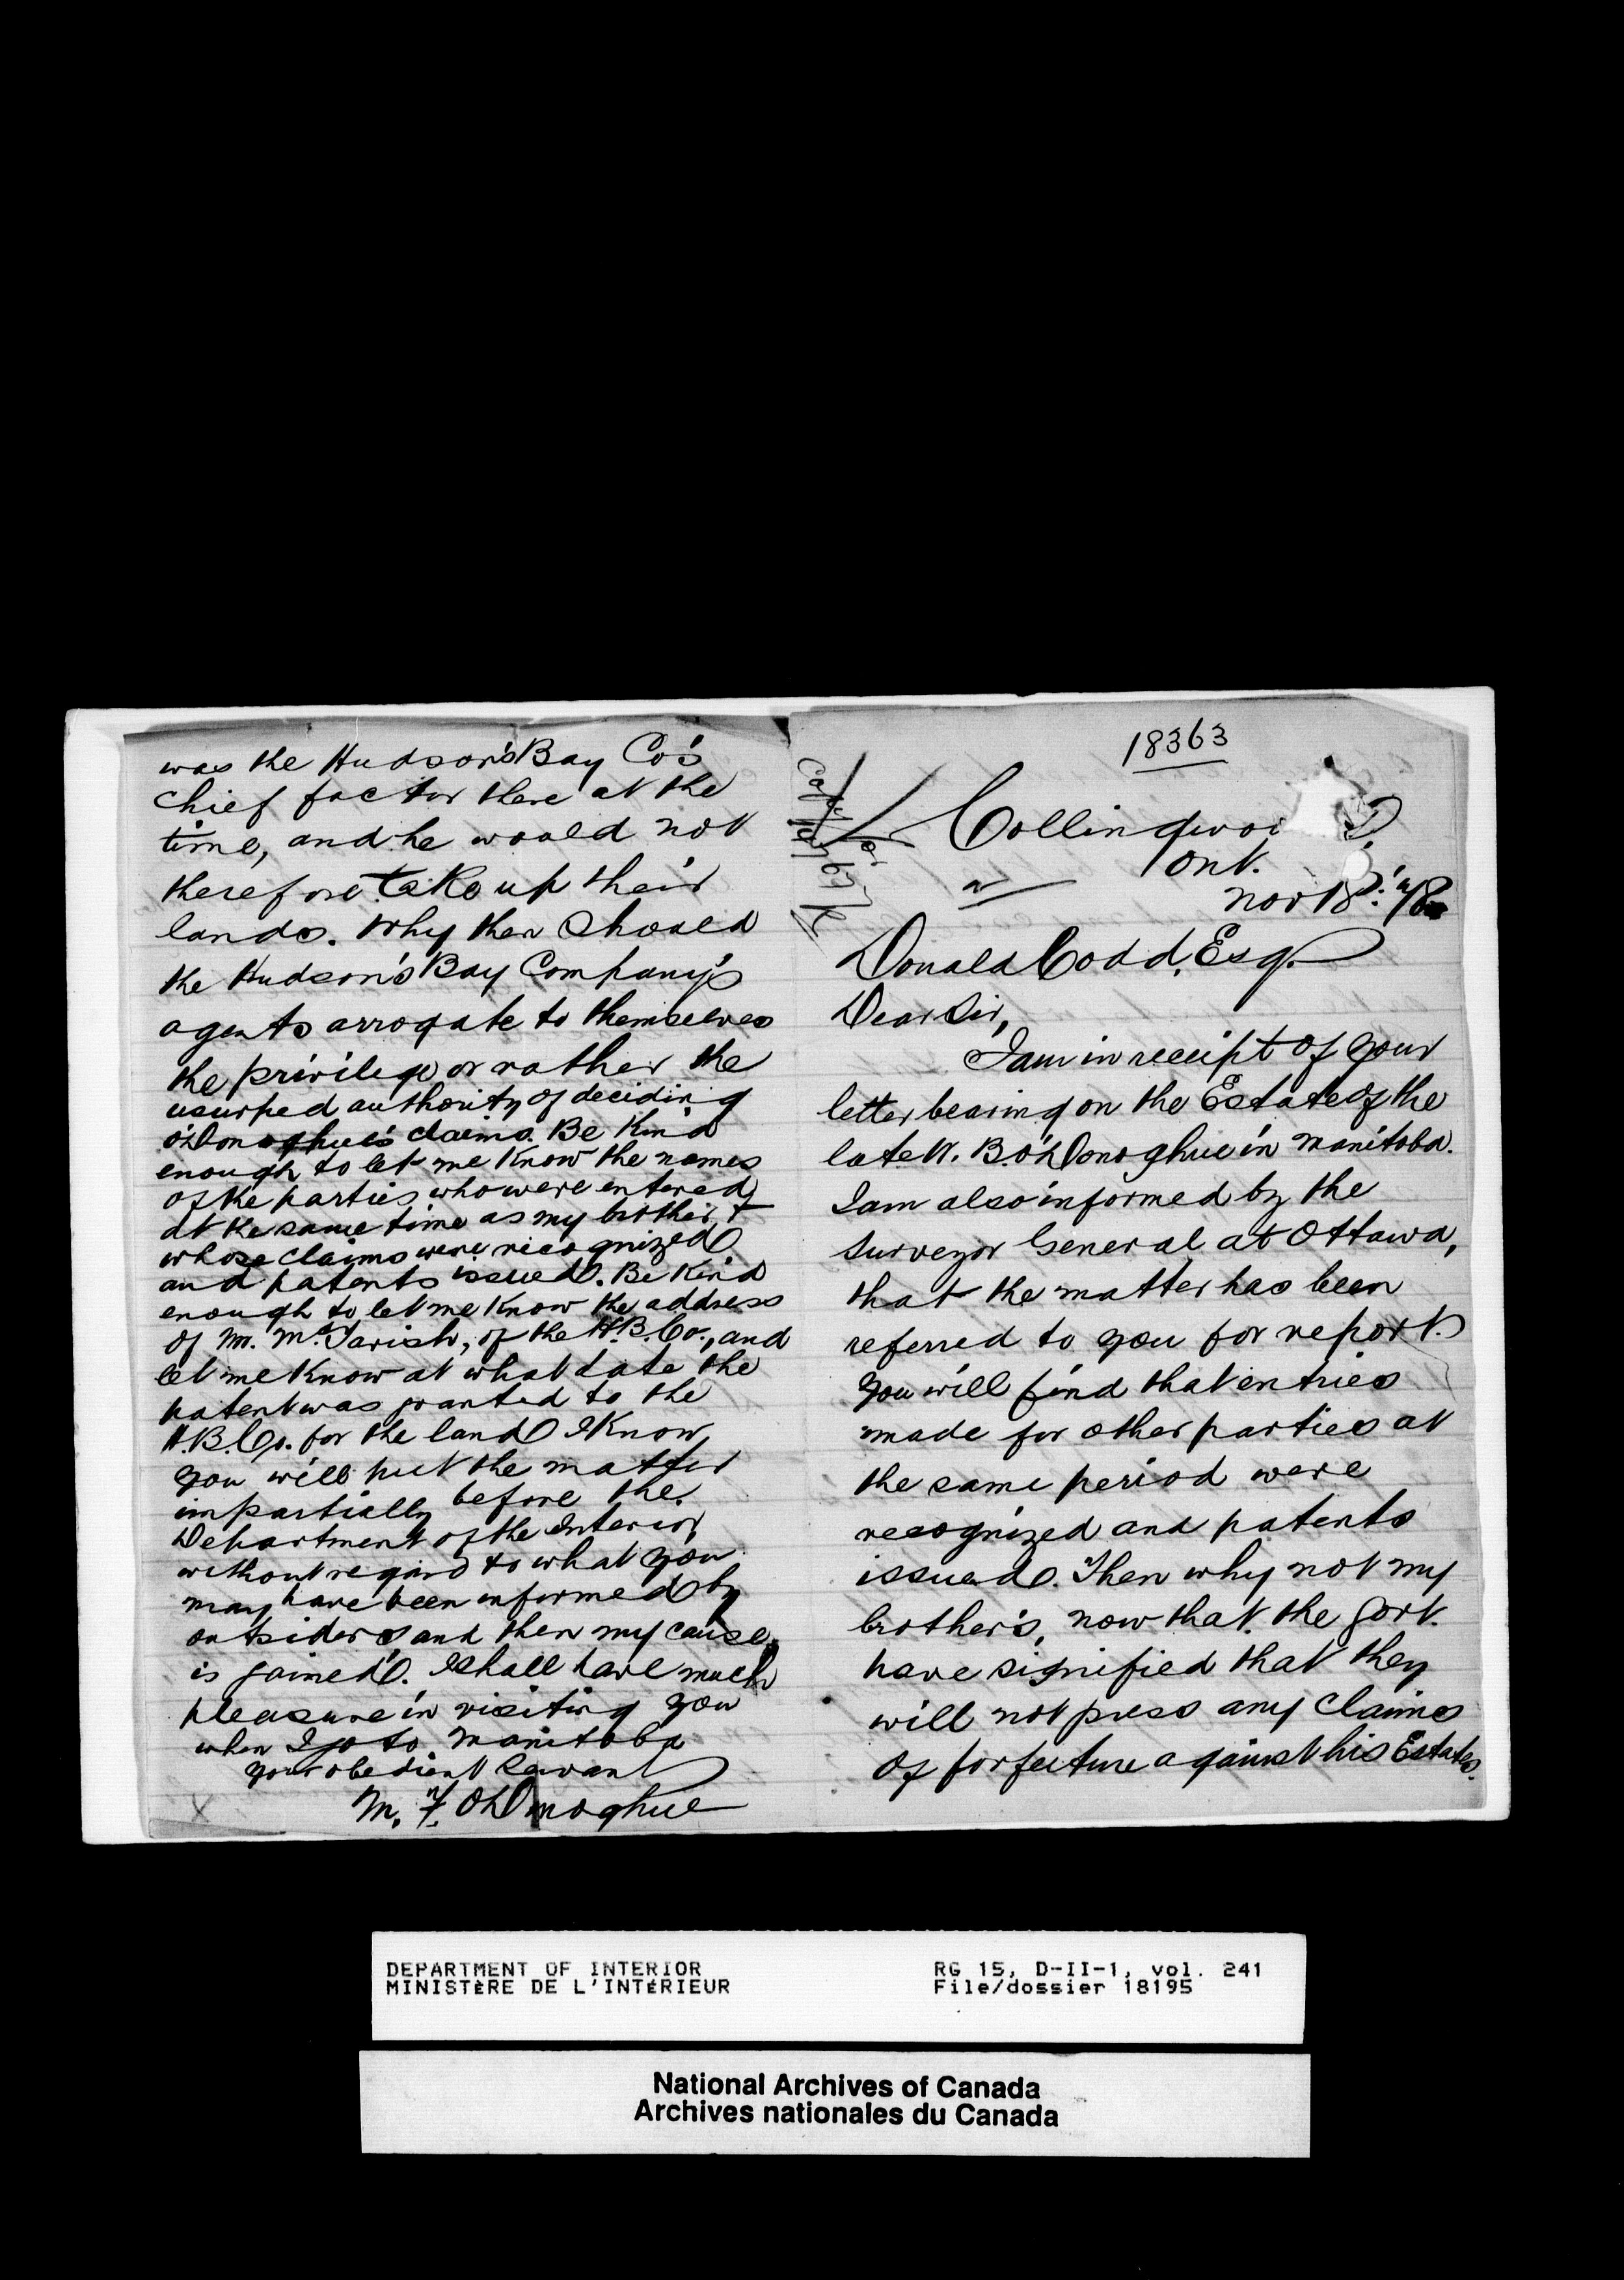 18363
Collingwoo
Ont.
Nov 18th '78
Donald Codd, Esq.
Dear Sir,
I am in receipt of your
letter bearing on the Estate of the
late W. B. O'Donoghue in Manitoba.
I am also informed by the
Surveyor General at Ottawa,
that the matter has been
referred to you for report.
You will find that entries
made for other parties at
the same period were
recognized and patents
issued. Then why not my
brother's, now that the Govt.
have signified that they
will not press any claims
of forfeiture against his Estates.
was the Hudson's Bay Co's
Chief factor there at the
time, and he would not
therefore take up their
lands. Why then should
the Hudson's Bay Company's
agents arrogate to themselves
the privilege or rather the
usurped authority of deciding
O'Donoghue's claims. Be kind
enough to let me know the names
of the parties who were entered
at the same time as my brother, &
whose claims were recognized
and patents issued. Be kind
enough to let me know the address
of Mr. McTavish, of the H.B.Co., and
let me know at what date the
patent was granted to the
H.B.Co. for the land I know
you will put the matter
impartially before the
Department of the Interior,
without regard to what you
may have been informed by
outsiders, and then my cause
is gained. I shall have much
pleasure in visiting you
when I go to Manitoba
Your obedient Servant
M. F. O'Donoghue
X
DEPARTMENT OF INTERIOR RG 15, D-II-1, vol. 241
MINISTÈRE DE L'INTÉRIEUR File/dossier 18195
National Archives of Canada
Archives nationales du Canada